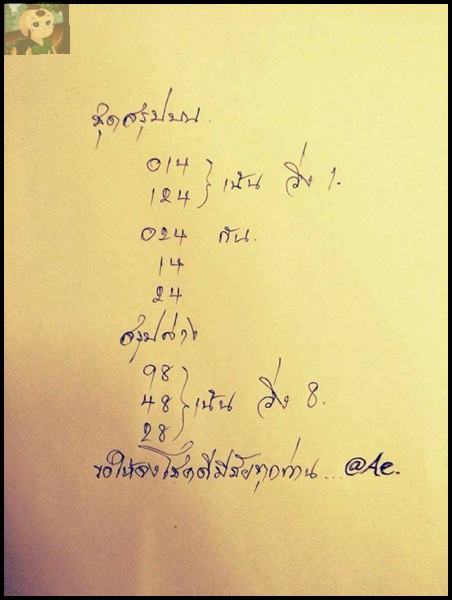 ชุดสรุปบน.
014
124 } เน้น วิ่ง 1.
024 กัน.
14
24
สรุปล่าง
98
48 } เน้น วิ่ง 8.
28
ขอให้จงโชคดีมีชัยทุกท่าน... @Ae.